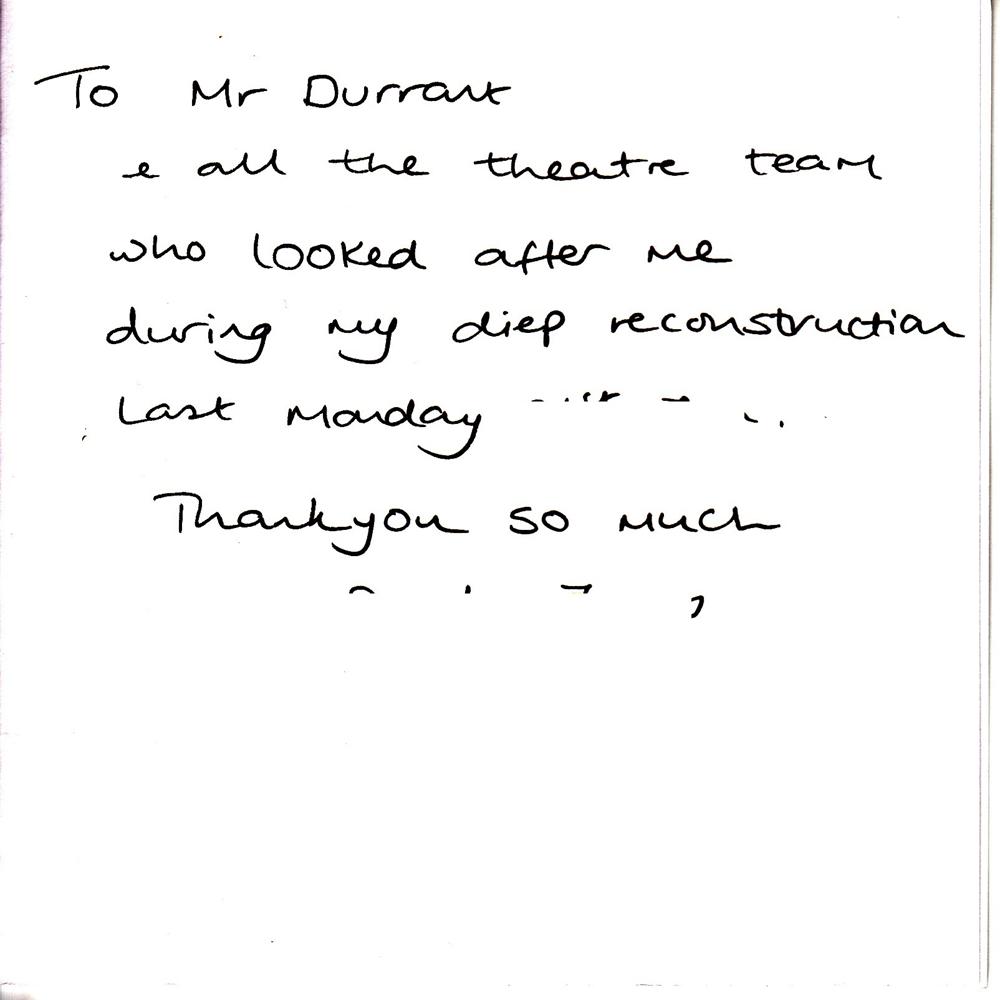 To Mr Durrant
& all the theatre team
who looked after me
during my diep reconstruction
Last Monday
Thankyou so much